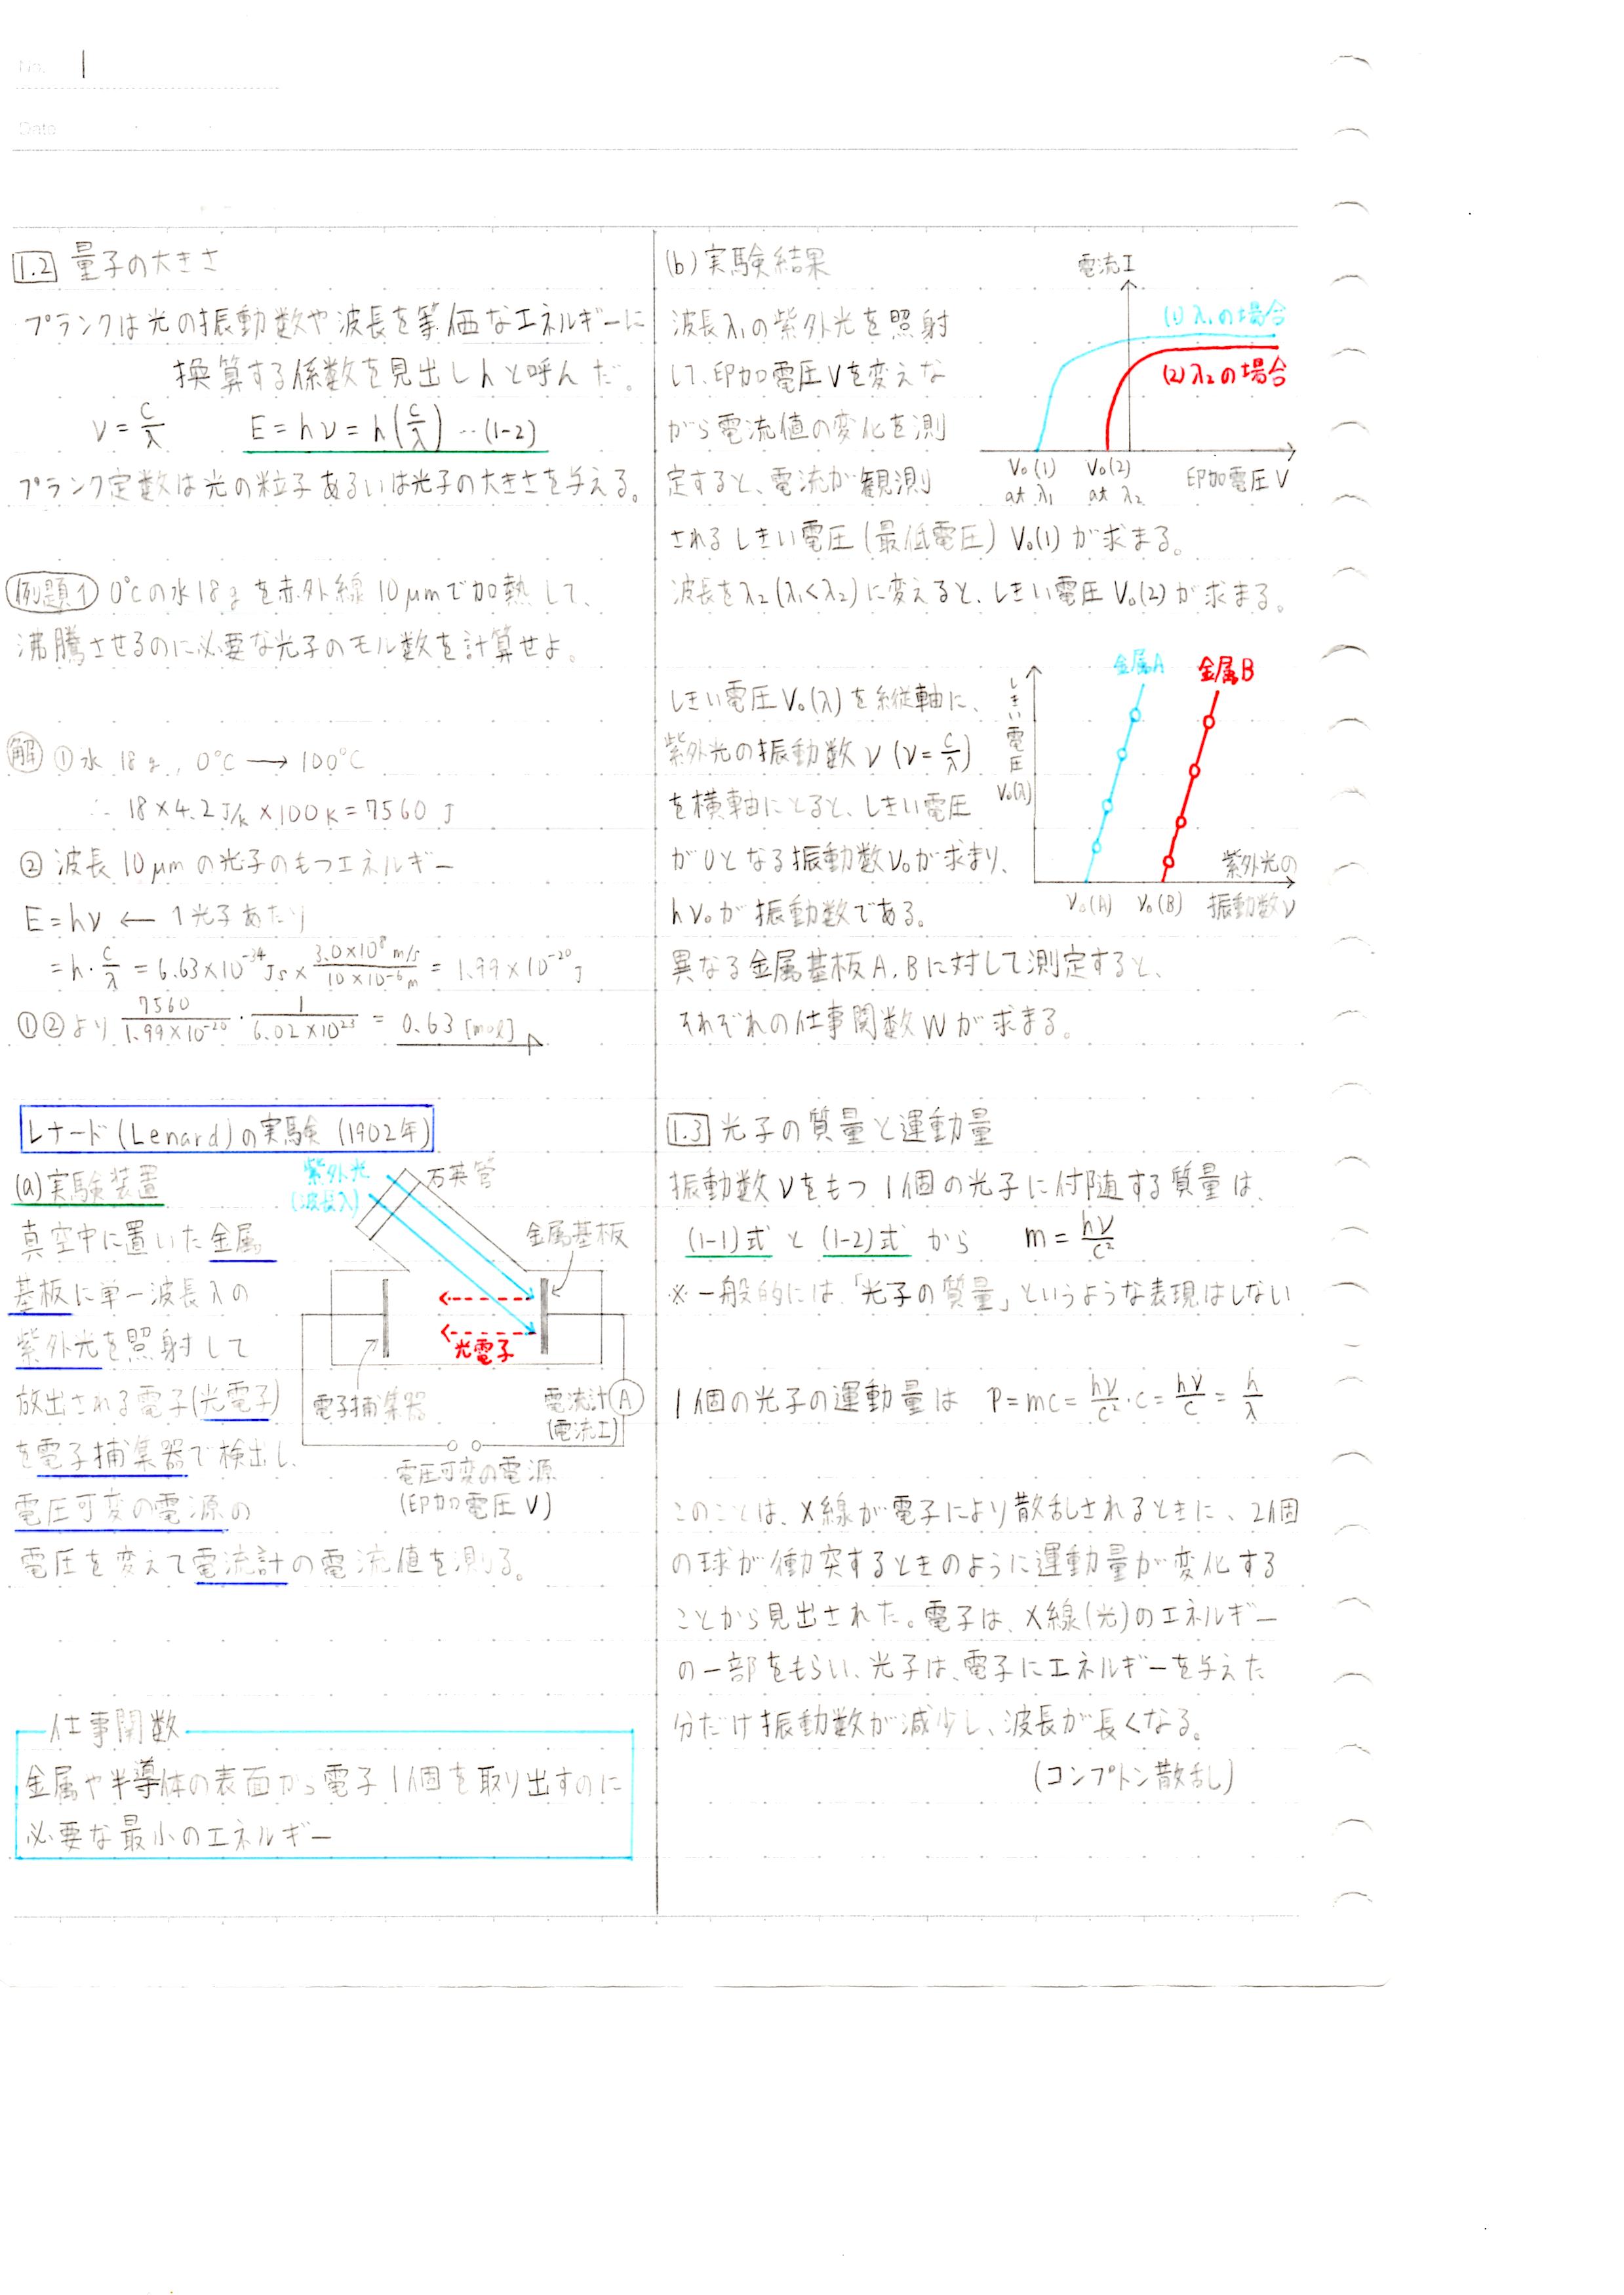 No. 1
Date
1.2 量子の大きさ
プランクは光の振動数や波長を等価なエネルギーに
換算する係数を見出しhと呼んだ。
ν = c/λ E = hν = h(c/λ) … (1-2)
プランク定数は光の粒子あるいは光子の大きさを与える。
例題1 0℃の水18gを赤外線10μmで加熱して、
沸騰させるのに必要な光子のモル数を計算せよ。
解 ① 水 18g, 0℃ → 100℃
∴ 18×4.2 J/K ×100K = 7560 J
② 波長10μmの光子のもつエネルギー
E = hν ← 1光子あたり
= h・c/λ = 6.63×10⁻³⁴ Js × 3.0×10⁸ m/s / 10×10⁻⁶ m = 1.99×10⁻²⁰ J
①②より 7560/1.99×10⁻²⁰ ・ 1/6.02×10²³ = 0.63 [mol]
レナード(Lenard)の実験 (1902年)
(a)実験装置
真空中に置いた金属
基板に単一波長λの
紫外光を照射して
放出される電子(光電子)
を電子捕集器で検出し、
電圧可変の電源の
電圧を変えて電流計の電流値を測る。
紫外光
(波長λ)
石英管
金属基板
光電子
電子捕集器
電流計 A
(電流I)
電圧可変の電源
(印加電圧V)
仕事関数
金属や半導体の表面から電子1個を取り出すのに
必要な最小のエネルギー
(b)実験結果
波長λ₁の紫外光を照射
して、印加電圧Vを変えな
がら電流値の変化を測
定すると、電流が観測
されるしきい電圧(最低電圧) V₀(1)が求まる。
波長をλ₂(λ₁<λ₂)に変えると、しきい電圧V₀(2)が求まる。
電流I
(1)λ₁の場合
(2)λ₂の場合
V₀(1) V₀(2) 印加電圧V
at λ₁ at λ₂
しきい電圧V₀(λ)を縦軸に、
紫外光の振動数ν(ν=c/λ)
を横軸にとると、しきい電圧
が0となる振動数ν₀が求まり、
hν₀が振動数である。
異なる金属基板A, Bに対して測定すると、
それぞれの仕事関数Wが求まる。
金属A 金属B
しきい電圧
V₀(λ)
紫外光の
ν₀(A) ν₀(B) 振動数ν
1.3 光子の質量と運動量
振動数νをもつ1個の光子に付随する質量は、
(1-1)式 と (1-2)式 から m = hν/c²
※一般的には「光子の質量」というような表現はしない
1個の光子の運動量は P = mc = hν/c²・c = hν/c = h/λ
このことは、X線が電子により散乱されるときに、2個
の球が衝突するときのように運動量が変化する
ことから見出された。電子は、X線(光)のエネルギー
の一部をもらい、光子は、電子にエネルギーを与えた
分だけ振動数が減少し、波長が長くなる。
(コンプトン散乱)